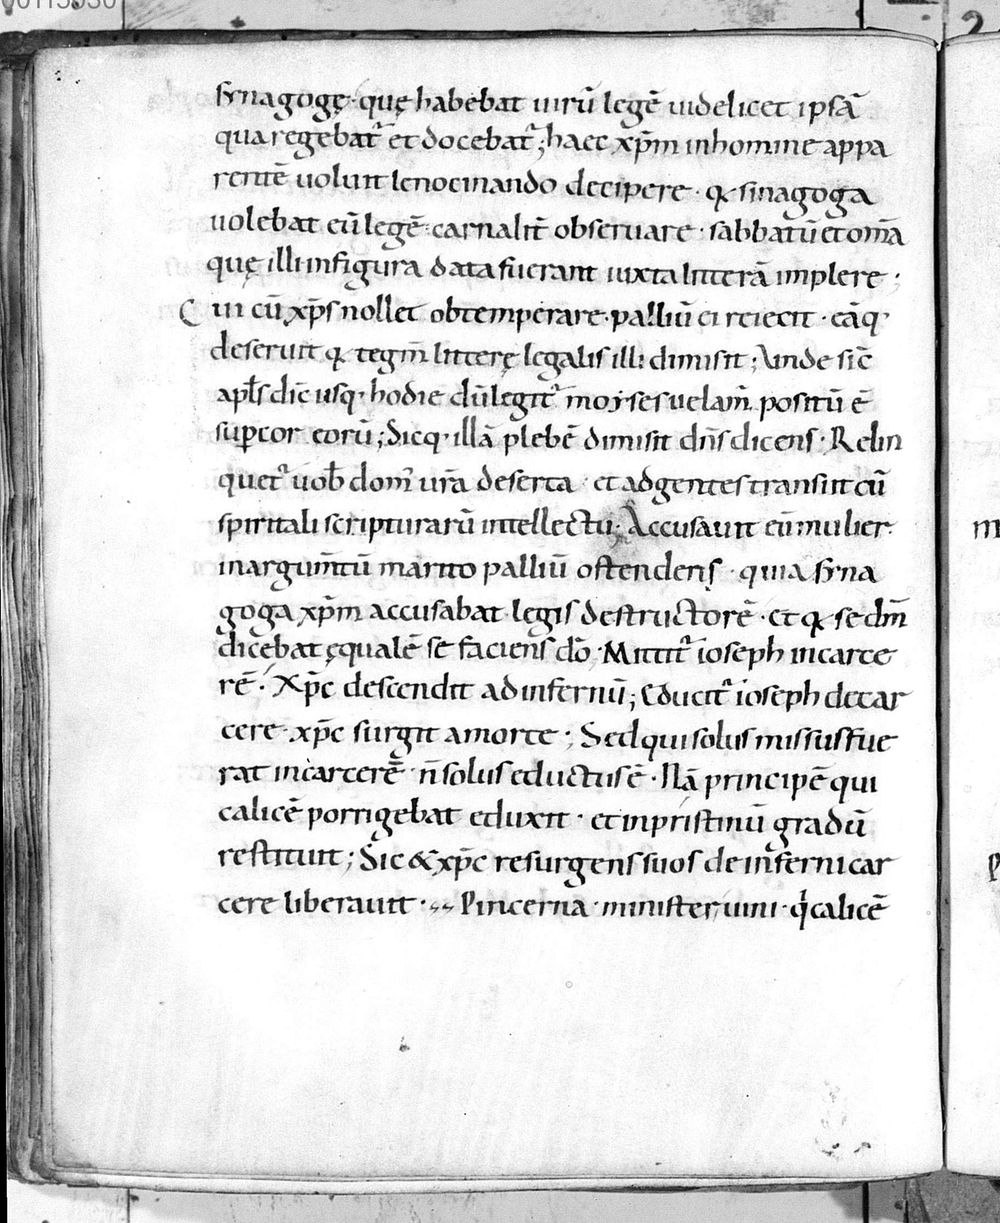 synagogę· quę habebat uirū legē uidelicet ipsā
qua regebat᷑ et docebat᷑; haec xp̄m in homine appa
rentē uoluit lenocinando decipere· qꝫ sinagoga
uolebat eū legē carnalit̄ obseruare· sabbatū et om̄a
quę illi in figura data fuerant iuxta litterā implere;
Cui cū xp̄s nollet obtemperare· palliū ei reiecit· eāq·
deseruit qꝫ tegm̄ litterę legalis illi dimisit; Unde sic̄
apl̄s dic̄ usq· hodie dū legit᷑ moyses uelam̄ positū ē
sup cor eorū; Sicq· illā plebē dimisit dn̄s dicens· Relin
quet᷑ uob̄ dom᷑ ur̄a deserta· et ad gentes transiit cū
spiritali scripturarū intellectu· Accusauit eū mulier
in argum̄tū marito palliū ostendens· quia syna
goga xp̄m accusabat legis destructorē· et qꝫ se dm̄
dicebat ęqualē se faciens dō· Mittit᷑ ioseph in carce
rē· Xp̄c descendit ad infernū; Educit᷑ ioseph de car
cere· xp̄c surgit a morte; Sed qui solus missus fue
rat in carcerē n̄ solus eductus ē· Nā principē qui
calicē porrigebat eduxit· et in pristinū gradū
restituit; Sic & xp̄c resurgens suos de inferni car
cere liberauit· Pincerna· minister uini· q̇ calicē